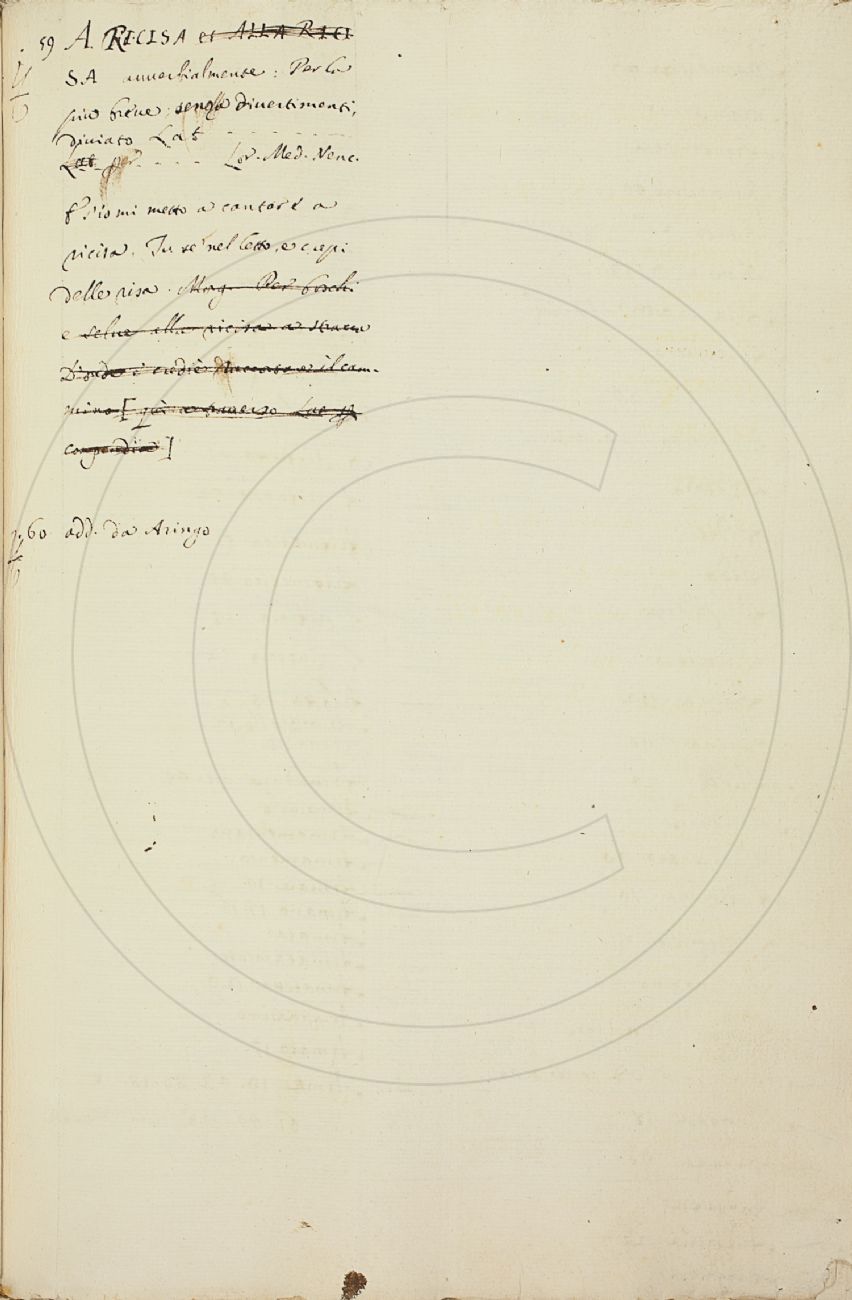 59 A RICISA et ALLA RICI
SA avverbialmente: Per la
più breve, senza divertimenti,
diviato Lat
Lat per Lor. Med. Nenc.
S'io mi metto a cantare a
ricisa. Tu se' nel letto, e crepi
delle risa. Morg. Per boschi
e selve alla ricisa a
Donde e' credie il cam-
mino [qui a traverso Lat
compendia]
60 add. da Aringo